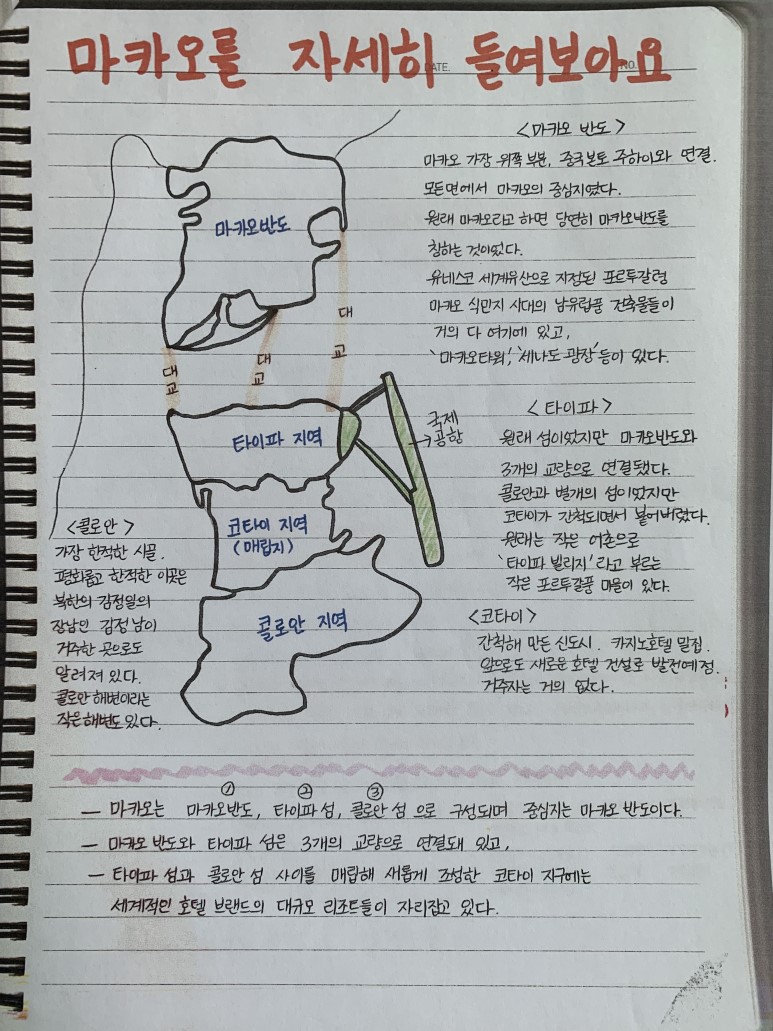 마카오를 자세히 들여보아요
DATE.
NO.
<마카오 반도>
마카오 가장 위쪽 부분, 중국본토 주하이와 연결.
모든면에서 마카오의 중심지였다.
원래 마카오라고 하면 당연히 마카오반도를
칭하는 것이었다.
유네스코 세계유산으로 지정된 포르투갈령
마카오 식민지 시대의 남유럽풍 건축물들이
거의 다 여기에 있고,
'마카오타워', '세나도 광장' 등이 있다.
마카오반도
대교
대교
대교
타이파 지역
국제
공항
<타이파>
원래 섬이었지만 마카오반도와
3개의 교량으로 연결됐다.
콜로안과 별개의 섬이었지만
코타이가 간척되면서 붙어버렸다.
원래는 작은 어촌으로
'타이파 빌리지' 라고 부르는
작은 포르투갈풍 마을이 있다.
코타이 지역
(매립지)
콜로안 지역
<콜로안>
가장 한적한 시골.
평화롭고 한적한 이곳은
북한의 김정일의
장남인 김정남이
거주한 곳으로도
알려져 있다.
콜로안 해변이라는
작은 해변도 있다.
<코타이>
간척해 만든 신도시. 카지노호텔 밀집.
앞으로도 새로운 호텔 건설로 발전예정.
거주자는 거의 없다.
① ② ③
— 마카오는 마카오반도, 타이파 섬, 콜로안 섬 으로 구성되며 중심지는 마카오 반도이다.
— 마카오 반도와 타이파 섬은 3개의 교량으로 연결돼 있고,
— 타이파 섬과 콜로안 섬 사이를 매립해 새롭게 조성한 코타이 지구에는
세계적인 호텔 브랜드의 대규모 리조트들이 자리잡고 있다.